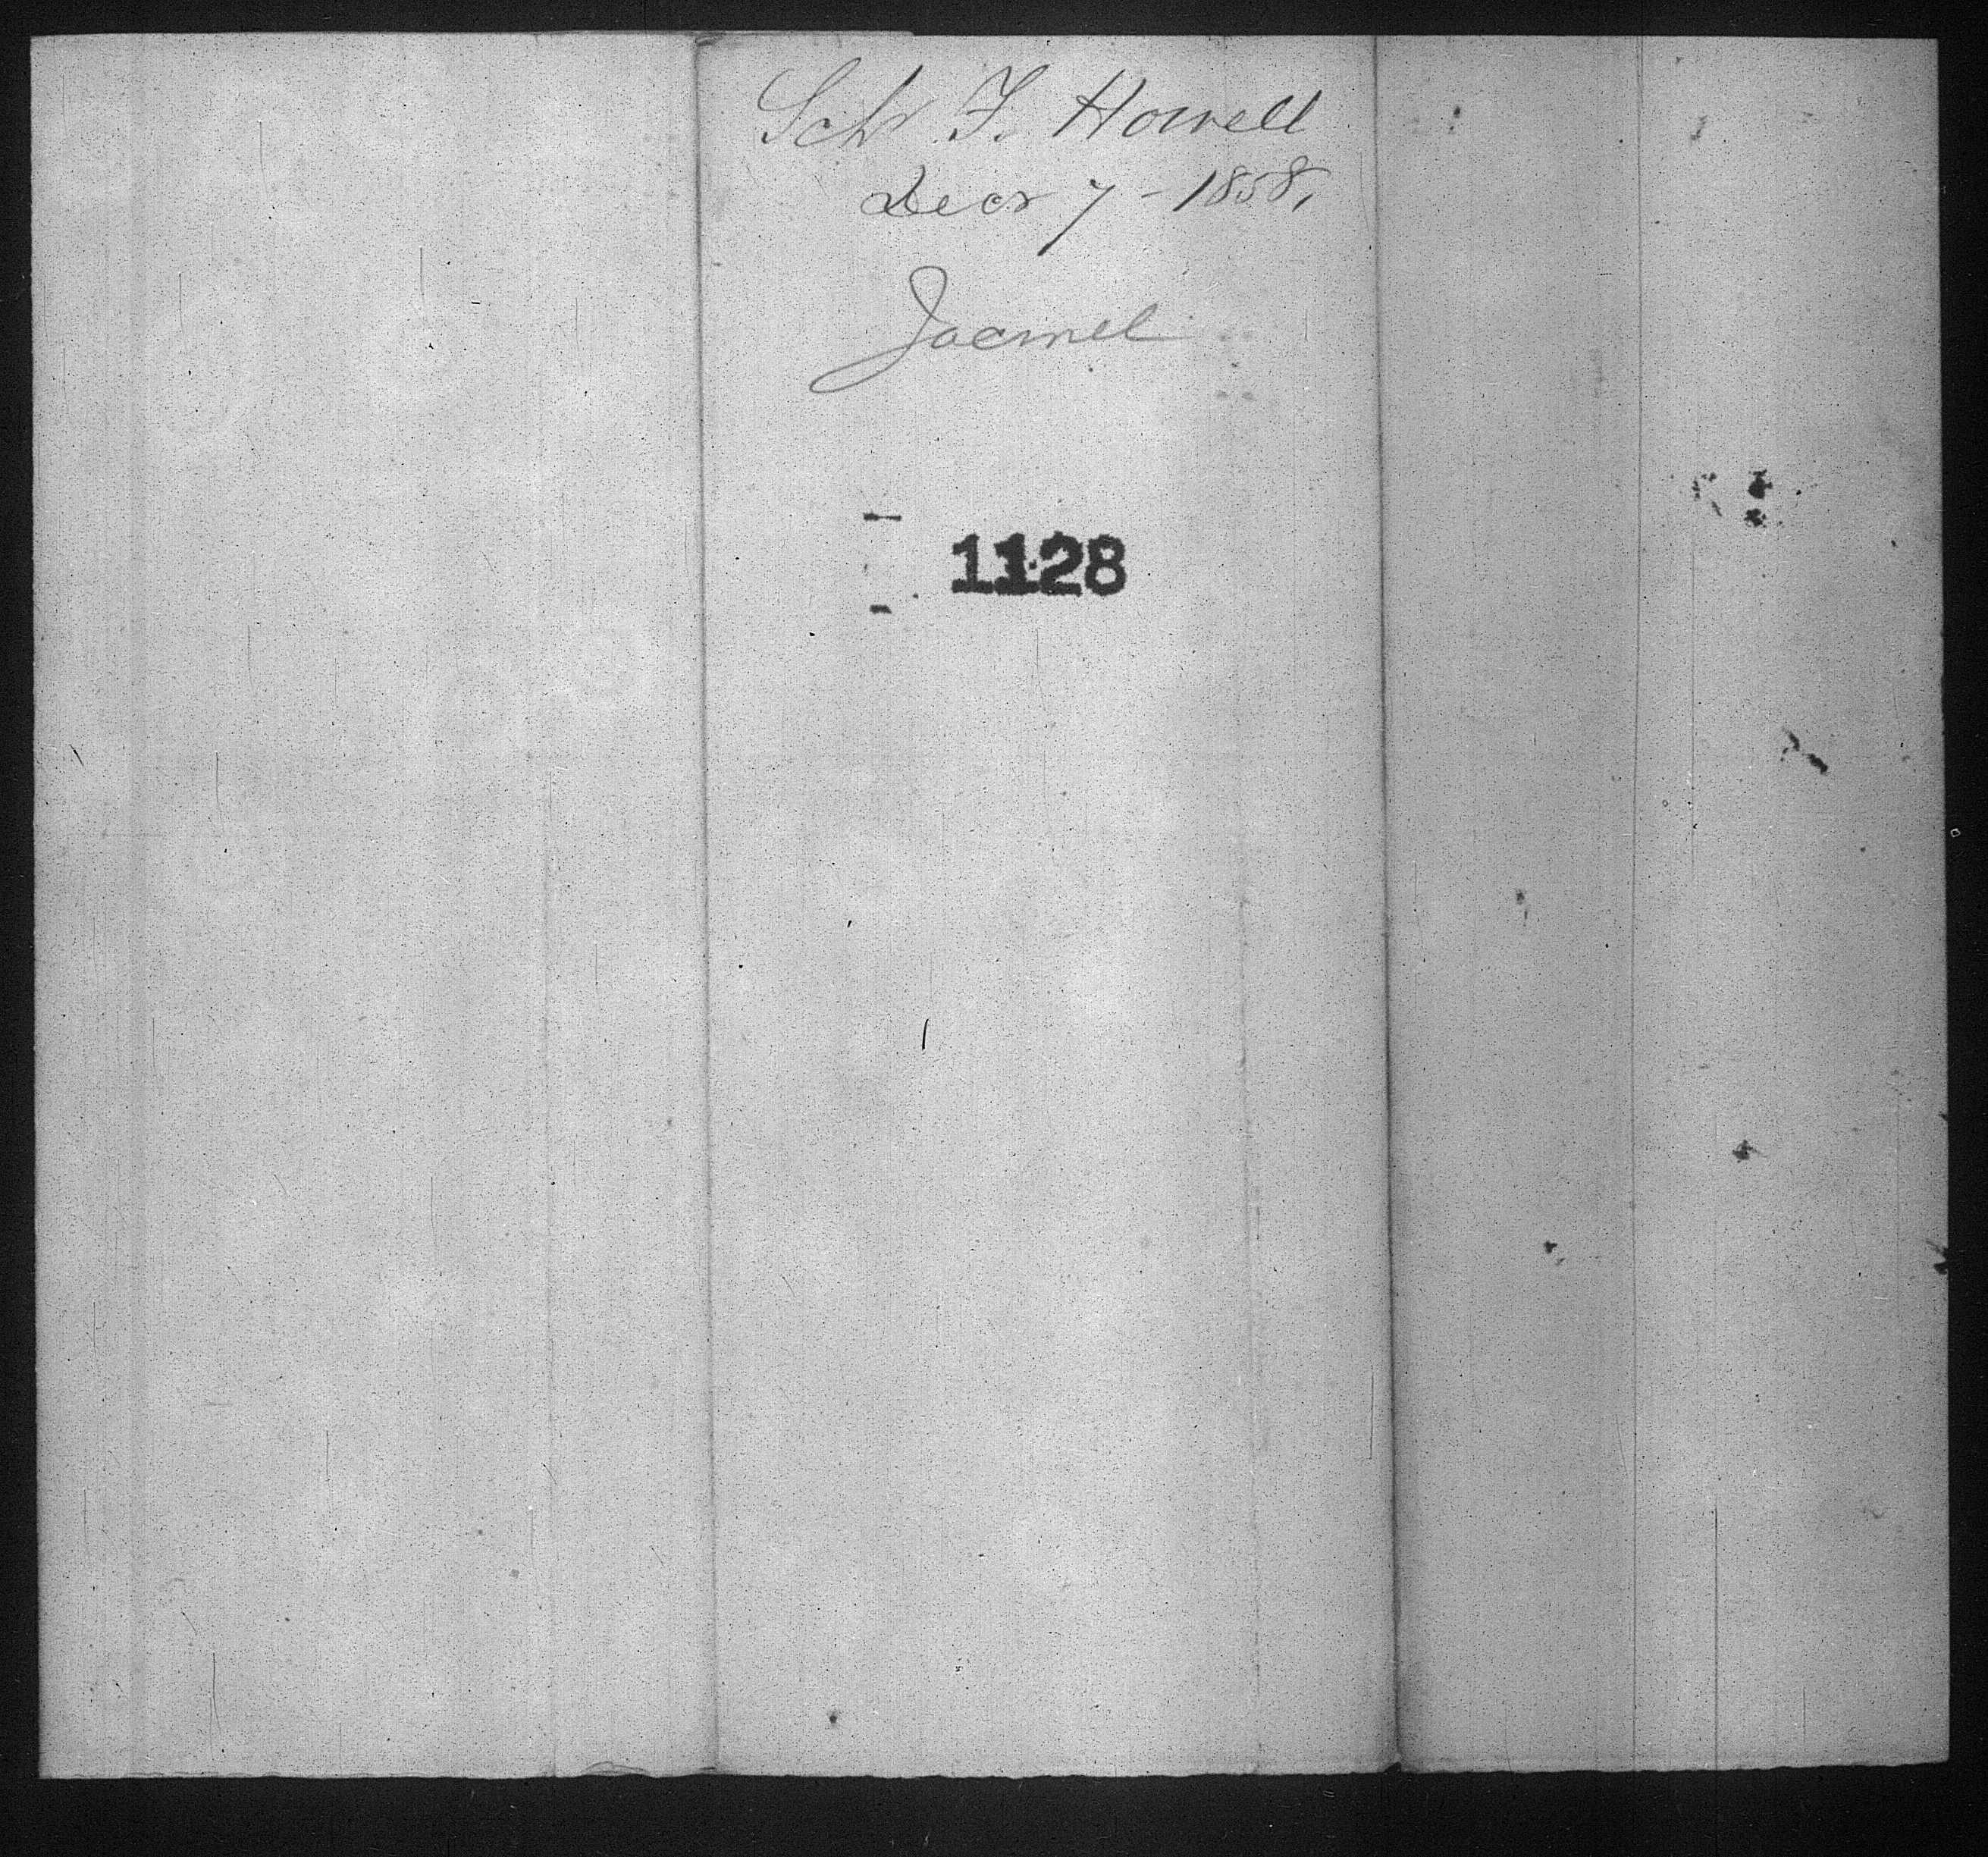 Schr F. Howell
Decr 7 - 1858,
Jacmel
1128